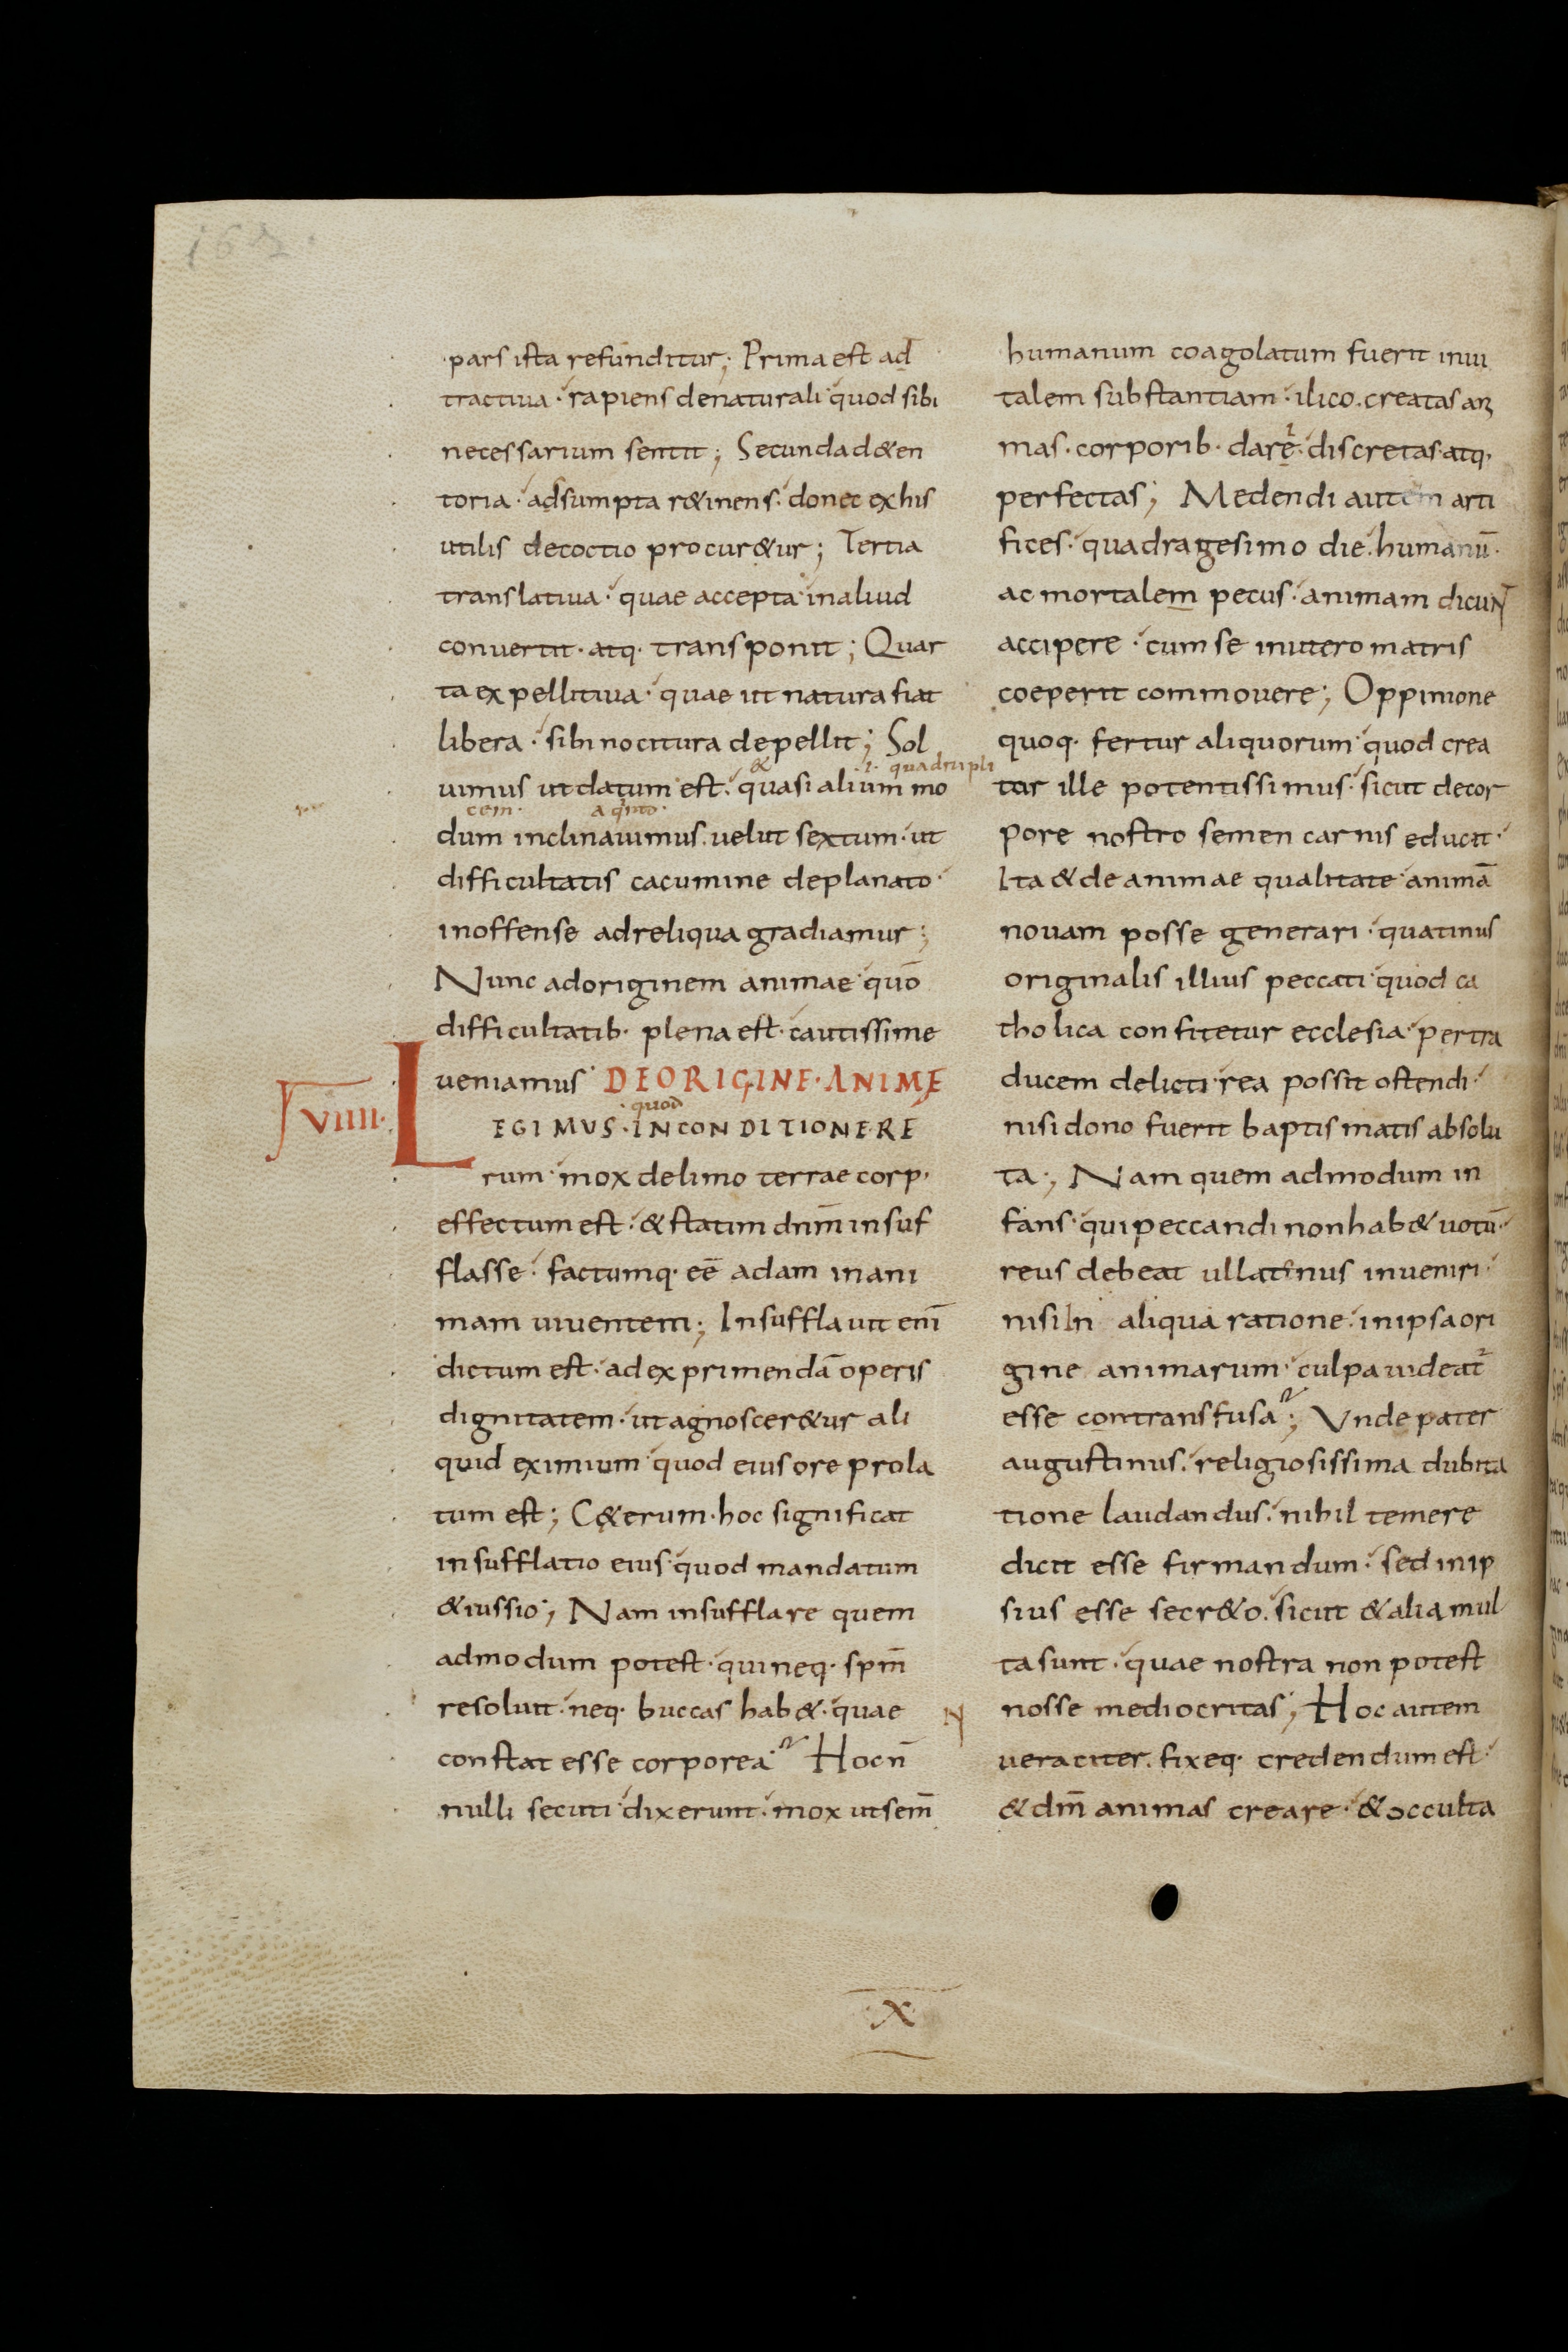 162.
pars ista refunditur; Prima est ad
tractiua· rapiens denaturali· quod sibi
necessarium sentit; Secunda d&en
toria· adsumpta r&inens· donec exhis
utilis decoctio procur&ur; Tertia
translatiua· quae accepta· inaliud
conuertit· atq· transponit; Quar
ta expellitiua· quae ut natura fiat
libera· sibi nocitura depellit; Sol
& ·i· quadrupli
uimus ut datum est· quasi alium mo
cem· a q̇nto·
dum inclinauimus· uelut sextum· ut
difficultatis cacumine deplanato·
inoffense adreliqua gradiamur;
Nunc adoriginem animae· quō
difficultatib· plena est· cautissime
ueniamus· DEORIGINE· ANIMĘ
quod
VIIII· LEGIMUS· INCONDITIONE RE
rum· mox delimo terrae corp·
effectum est· & statim dn̄m insuf
flasse· factumq· eē adam inani
mam uiuentem; Insufflauit enī
dictum est· ad exprimendā operis
dignitatem· ut agnoscer&ur ali
quid eximium· quod eius ore prola
tum est; C&erum· hoc significat
insufflatio eius· quod mandatum
& iussio; Nam insufflare quem
admodum potest· qui neq· spm̄
resoluit· neq· buccas hab&· quae
constat esse corporea· Hoc n̄
nulli secuti· dixerunt· mox ut sem̄
humanum coagolatum fuerit inui
talem substantiam· ilico· creatas ani
mas· corporib· darẹi· discretas· atq·
perfectas; Medendi autem arti
fices· quadragesimo die· humanū·
ac mortalem pecus· animam dicuNT
accipere· cum se inutero matris
coeperit commouere; Oppinione
quoq· fertur aliquorum· quod crea
tor ille potentissimus· sicut decor
pore nostro semen carnis educit·
Ita & de animae qualitate· animā
nouam posse generari· quatinus
originalis illius peccati· quod ca
tholica confitetur ecclesia· pertra
ducem delicti· rea possit ostendi·
nisi dono fuerit baptismatis absolu
ta; Nam quem admodum in
fans· qui peccandi non hab& uotū·
reus debeat ullatenus inueniri·
nisi In aliqua ratione· inipsa ori
gine animarum· culpa uideat᷑
esse contransfusa; Vnde pater
augustinus· religiosissima dubita
tione laudandus· nihil temere
dicit esse firmandum· sed inip
sius esse secr&o· sicut & alia mul
ta sunt· quae nostra non potest
nosse mediocritas; Hoc autem
N
ueraciter· fixeq· credendum est·
& dm̄ animas creare· & occulta
·X·